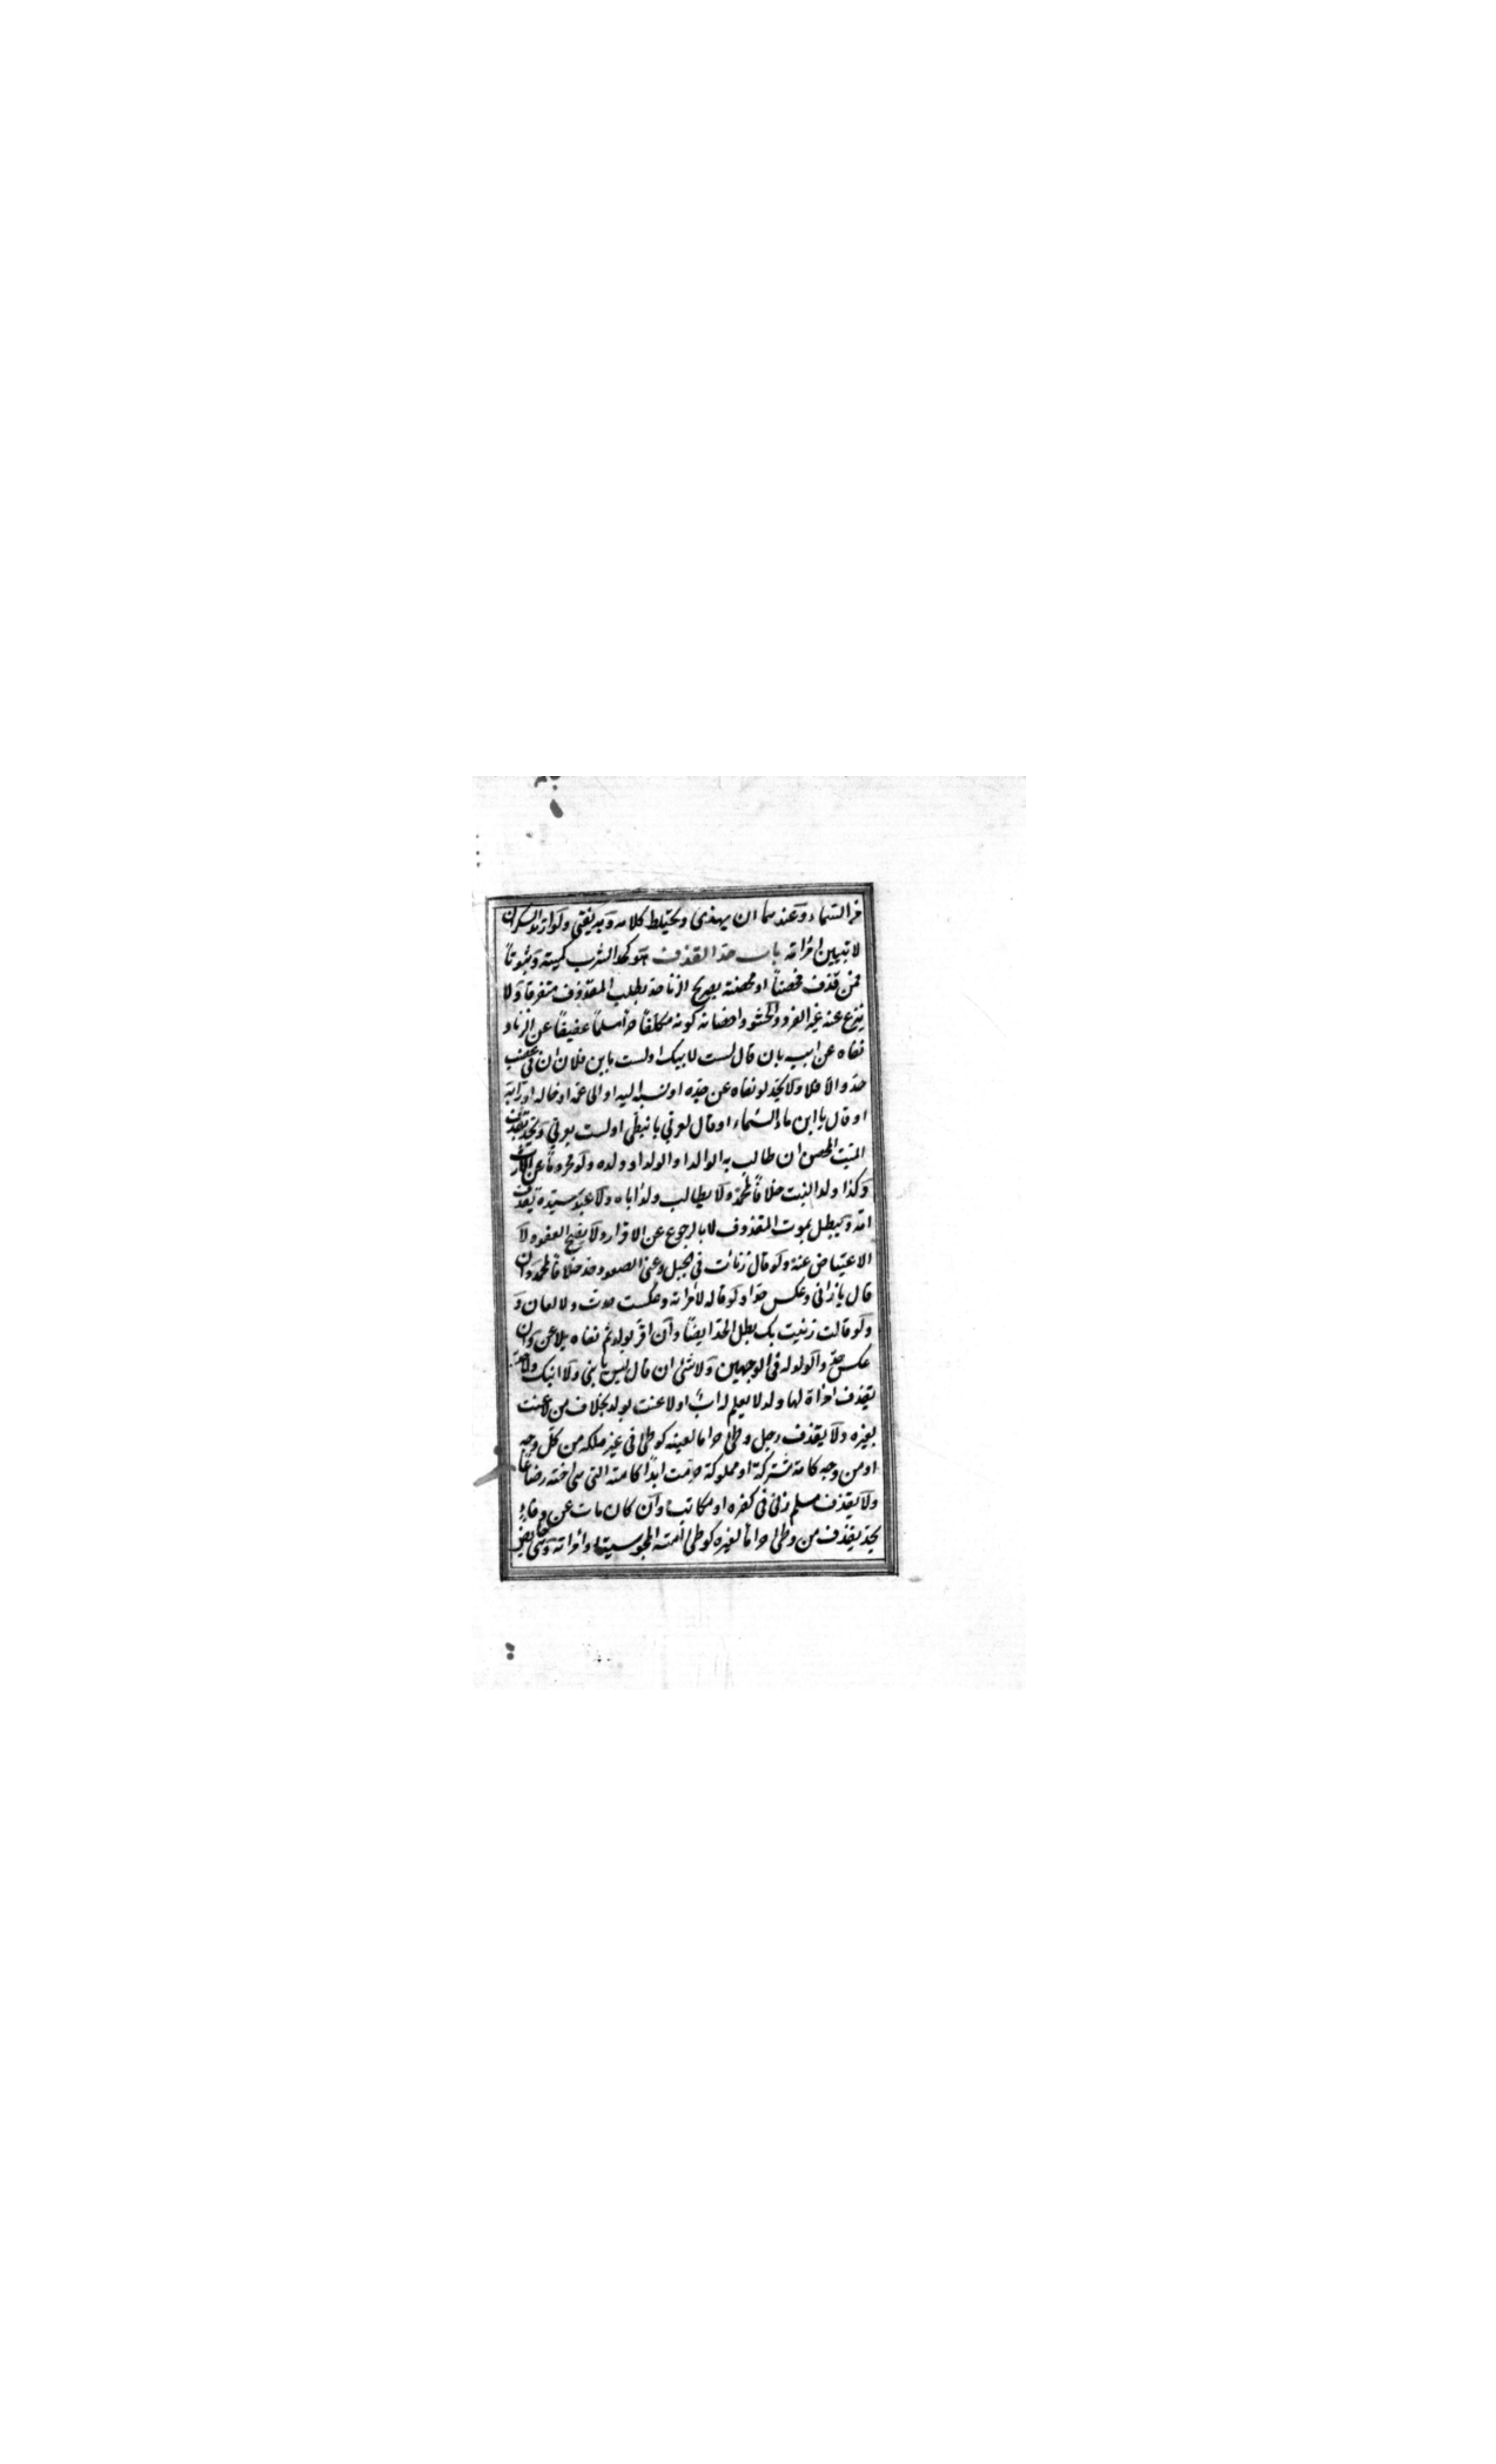 من السماء وعندهما ان يهذى ويختلط كلامه وبه يفتى ولو ارتد السكران
لا تبين امرأته باب حد القذف هو كحد الشرب كمية وثبوتاً
فمن قذف محصناً او محصنة بصريح الزنا حد بطلب المقذوف متفرقا ولا
ينزع عنه غير الفرو والحشو واحصانه كونه مكلفاً حراً مسلماً عفيفاً عن الزنا و
نفاه عن ابيه بان قال لست لابيك او لست بابن فلان ان فى غضب
حد والا فلا ولا يحد لو نفاه عن جده او نسبه اليه او الى عمه او خاله او رابه
او قال يا ابن ماء السماء او قال لعربي يا نبطي او لست بعربي ويحد بقذف
الميت المحصن ان طالب به الوالد او الولد او ولده ولو محروماً عن الارث
وكذا ولد البنت خلافاً لمحمد ولا يطالب ولد اباه ولا عبد سيده بقذف
امه ويبطل بموت المقذوف لا بالرجوع عن الاقرار ولا يصح العفو ولا
الاعتياض عنه ولو قال زنأت في الجبل وعنى الصعود حد خلافاً لمحمد وان
قال يا زانى وعكس حدا ولو قاله لامرأته وعكست حدت ولا لعان و
ولو قالت زنيت بك بطل الحد ايضاً وان اقر بولد ثم نفاه يلاعن وان
عكس حد والولد له فى الوجهين ولا شئ ان قال ليس بابني ولا ابنك ولا حد
بقذف امرأة لها ولد لا يعلم له اب او لاعنت بولد بخلاف من لاعنت
بغيره ولا بقذف رجل وطئ حراما لعينه كوطئ فى غير ملكه من كل وجه
او من وجه كامة مشتركة او مملوكة حرمت ابداً كامته التى هى اخته رضاعاً
ولا بقذف مسلم زنى فى كفره او مكاتب وان كان مات عن وفاء
يحد بقذف من وطئ حراماً لغيره كوطئ امته المجوسية او امرأته وهى حايض